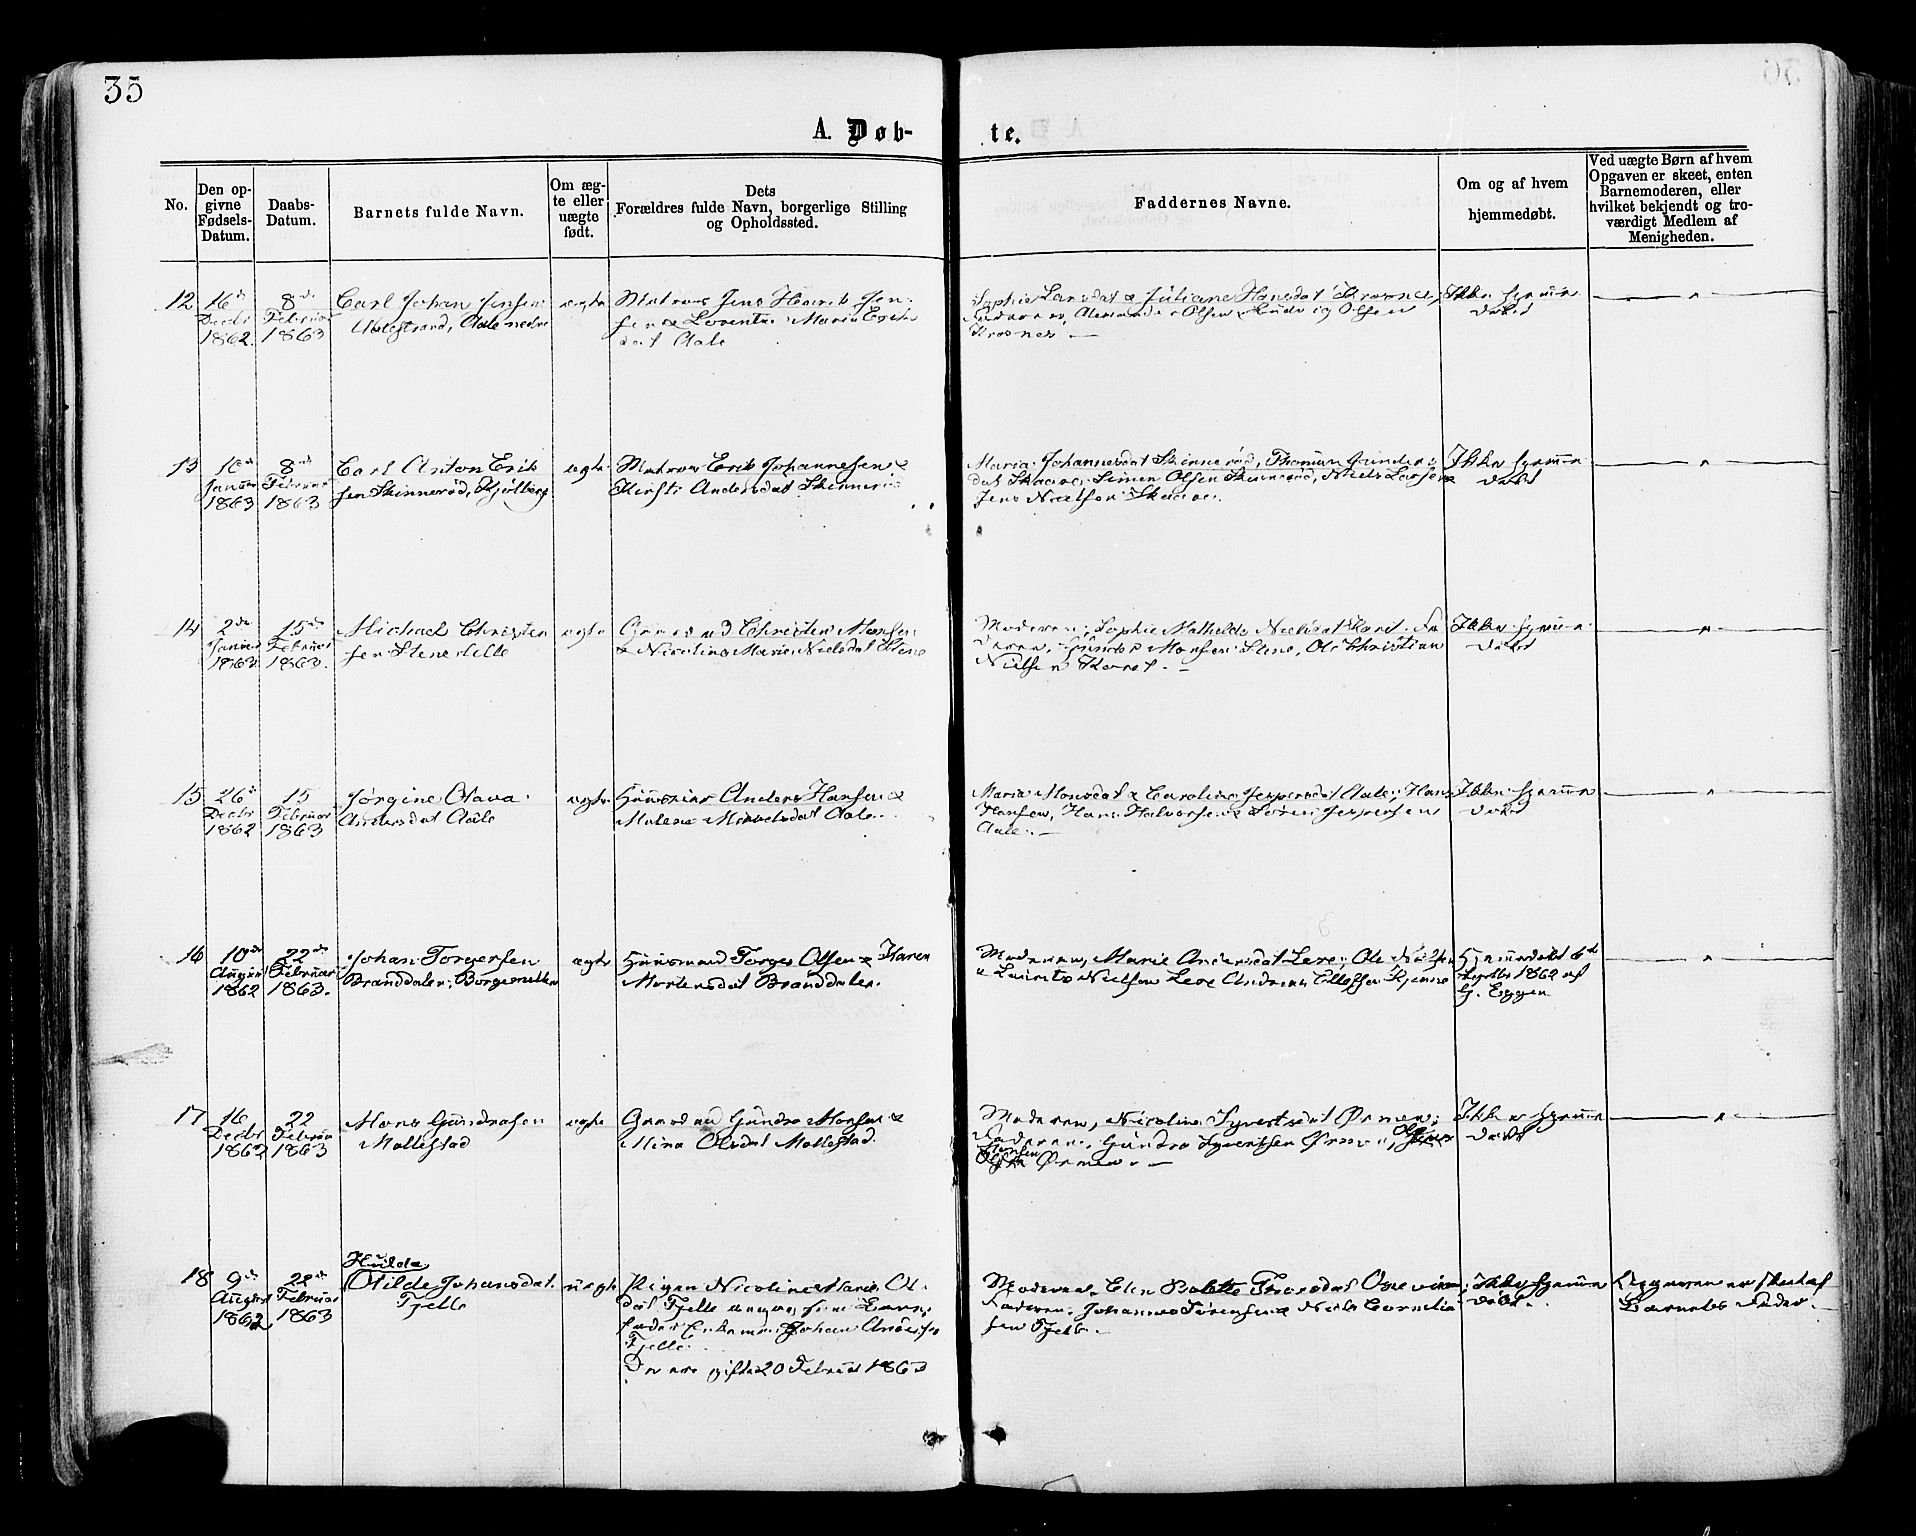 35
A. Døb-
te.
No.
Den op-
givne
Fødsels-
Datum.
Daabs-
Datum.
Barnets fulde Navn.
Om æg-
te eller
uægte
født.
Dets
Forældres fulde Navn, borgerlige Stilling
og Opholdssted.
Faddernes Navne.
Om og af hvem
hjemmedøbt.
Ved uægte Børn af hvem
Opgaven er skeet, enten
Barnemoderen, eller
hvilket bekjendt og tro-
værdigt Medlem af
Menigheden.
12
16de
Decbr
1862.
8de
Februar
1863
Carl Johan Jensen
Aalestrand, Aale nedre
ægte
Matros Jens Henrik Jen-
sen & Lorentze Maria Eriks
dat Aale
Sophie Larsdat & Juliane Hansdat Krosnes,
Faderen, Alexander Olsen & Ludvig Olsen
Krosnes —
Ikke hjemme
døbt
13
10de
Januar
1863
8de
Februar
1863
Carl Anton Erik
sen Skinnerød, Kjølberg
ægte
Matros Erik Johannesen &
Kirsti Andersdat Skinnerød
Maria Johannesdat Skinnerød, Gunder
dat Skaare, Simen Olsen Skinnerød, Niels Larsen &
Jens Nielsen Skaare.
Ikke hjemme
døbt
14
2den
Januar
1863
15de
Februar
1863.
Michael Christen
sen Stene
ægte
Gaardmd Christen Monsen
& Nicoline Marie Nielsdat Stene
Moderen, Sophie Mathilde Nielsdat Karet, Fa
deren, Monsen Stene, Ole Christian
Nielsen Karet. —
Ikke hjemme
døbt
15
26de
Decbr
1862
15
Februar
1863
Jørgine Olava
Andersdat Aale
ægte
Huusmand Anders Hansen &
Malene Mikkelsdat Aale.
Maria Monsdat & Caroline Jespersdat Aale, Hans
Hansen, Hans Halvorsen & Søren Jespersen
Aale. —
Ikke hjemme
døbt
16
10de
August
1862
22de
Februar
1863.
Johan Torgersen
Branddalen, Borge
ægte
Huusmand Torger Olsen & Karen
Mortensdat Branddalen.
Moderen, Marie Andersdat Lere, Ole Nielsen
& Laurits Nielsen Lere Andreas Kjenne
Hjemmedøbt 6te
1862 af
G. Eggen
17
16
Decbr
1862
22
Februar
1863
Mons Gundrosen
Mallestad
ægte
Gaardmd Gundro Monsen &
Mina Olsdat Mallestad.
Moderen, Nicoline Syvertsdat Ørmen,
Faderen, Gundro Syvertsen Ørmen,
Ørmen. —
Ikke hjemme
døbt
18
9de
August
1862
22de
Februar
1863
Hulda
Otilde Johansdat.
Tjelle
uægte
Pigen Nicoline Marie Ol-
dat Tjelle angav som Barne
fader Enkemand Johan Andersen
Tjelle.
De ere gifte 20 Februar 1863
Moderen, Elen Bolette Thorsdat
Faderen, Johannes Sørensen & Niels Cornelius
sen Tjelle. —
Ikke hjemme
døbt.
Opgaven er skeet af
Barnets Fader.